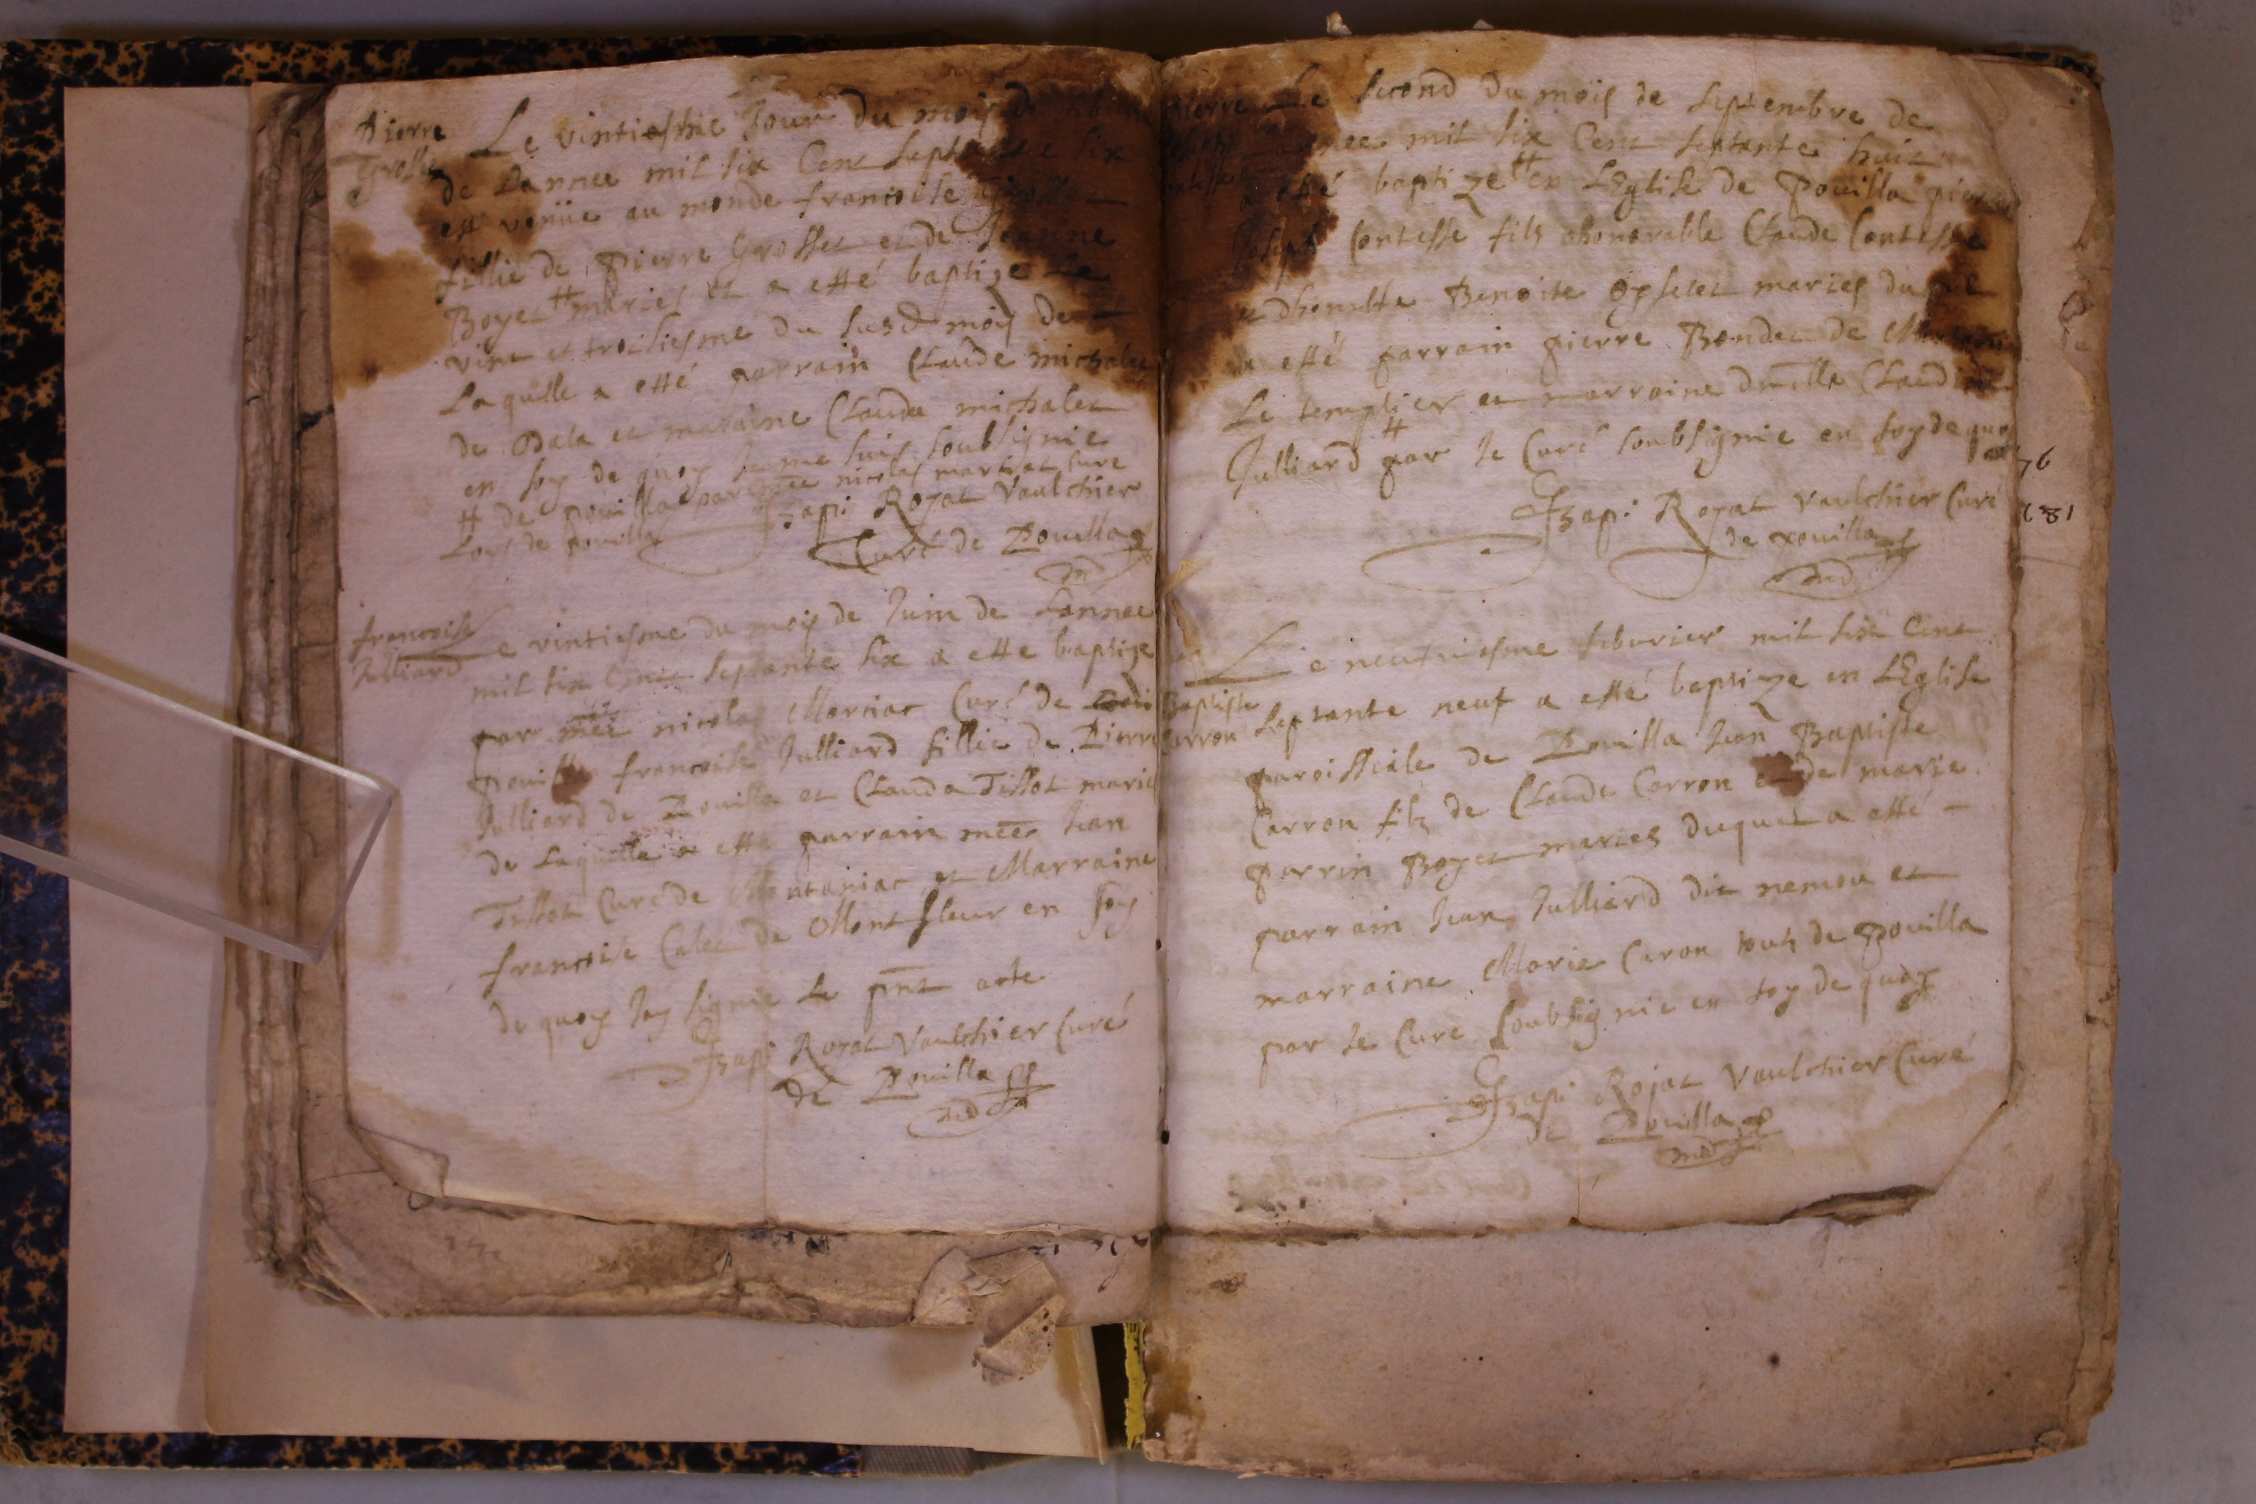 Pierre
Grosset
Le vintiesme Jour du mois de
de Lannee mil six Cent sept six
est venüe au monde francoise
fillie de pierre Grosset et de Jeanne
Boyet # maries et a etté baptize Le
vint et troisiesme du susd mois de
Laquelle a etté parrain Claude michalet
de Data et maraine Claude michalet
en foy de quoy Je me suis soubsignie
# de pouilla par mee nicolas martiat Cure
Lors de pouilla
Jbapt Royat Vaulchier
Curé de Pouilla
francoise
Julliard
Le vintiesme du mois de Juin de Lannee
mil six Cent septante six a ette baptize
par mee nicolas Morciat Curé de
pouilla francoise Julliard fillie de Pierre
Julliard de Pouilla et Clauda Tissot marie
de Laquelle a etté parrain mee Jean
Tissot Curé de Montaniac et Marraine
francoise Calet de Montfleur en foy
de quoy Jay signie Le pnt acte
Jbapt Royat Vaulchier Curé
de Pouilla
pierre
Le second du mois de septembre de
Lannee mil six Cent septante huit
a etté baptize # en LEglise de Pouilla pierre
Joseph Contesse filz dhonorable Claude Contesse
et dhonnette Benoite maries duquel
a etté parrain pierre Bondet de
Le templier et marraine dmlle Claudine
Julliard # par Le Curé soubsignie en foy de quoy
76
1681
Jbapt Royat Vaulchier Curé
de pouilla
Baptiste
Carron
Le neufviesme febvrier mil six Cent
septante neuf a etté baptize en LEglise
paroissiale de Pouilla Jean Baptiste
Carron filz de Claude Carron et de marie
perrin Boyet maries duquel a etté
parrain Jean Julliard dit nemou et
marraine Marie Caron touts de Pouilla
par Le Cure soubsignie en foy de quoy
Jbapt Rojat Vaulchier Curé
de Pouilla